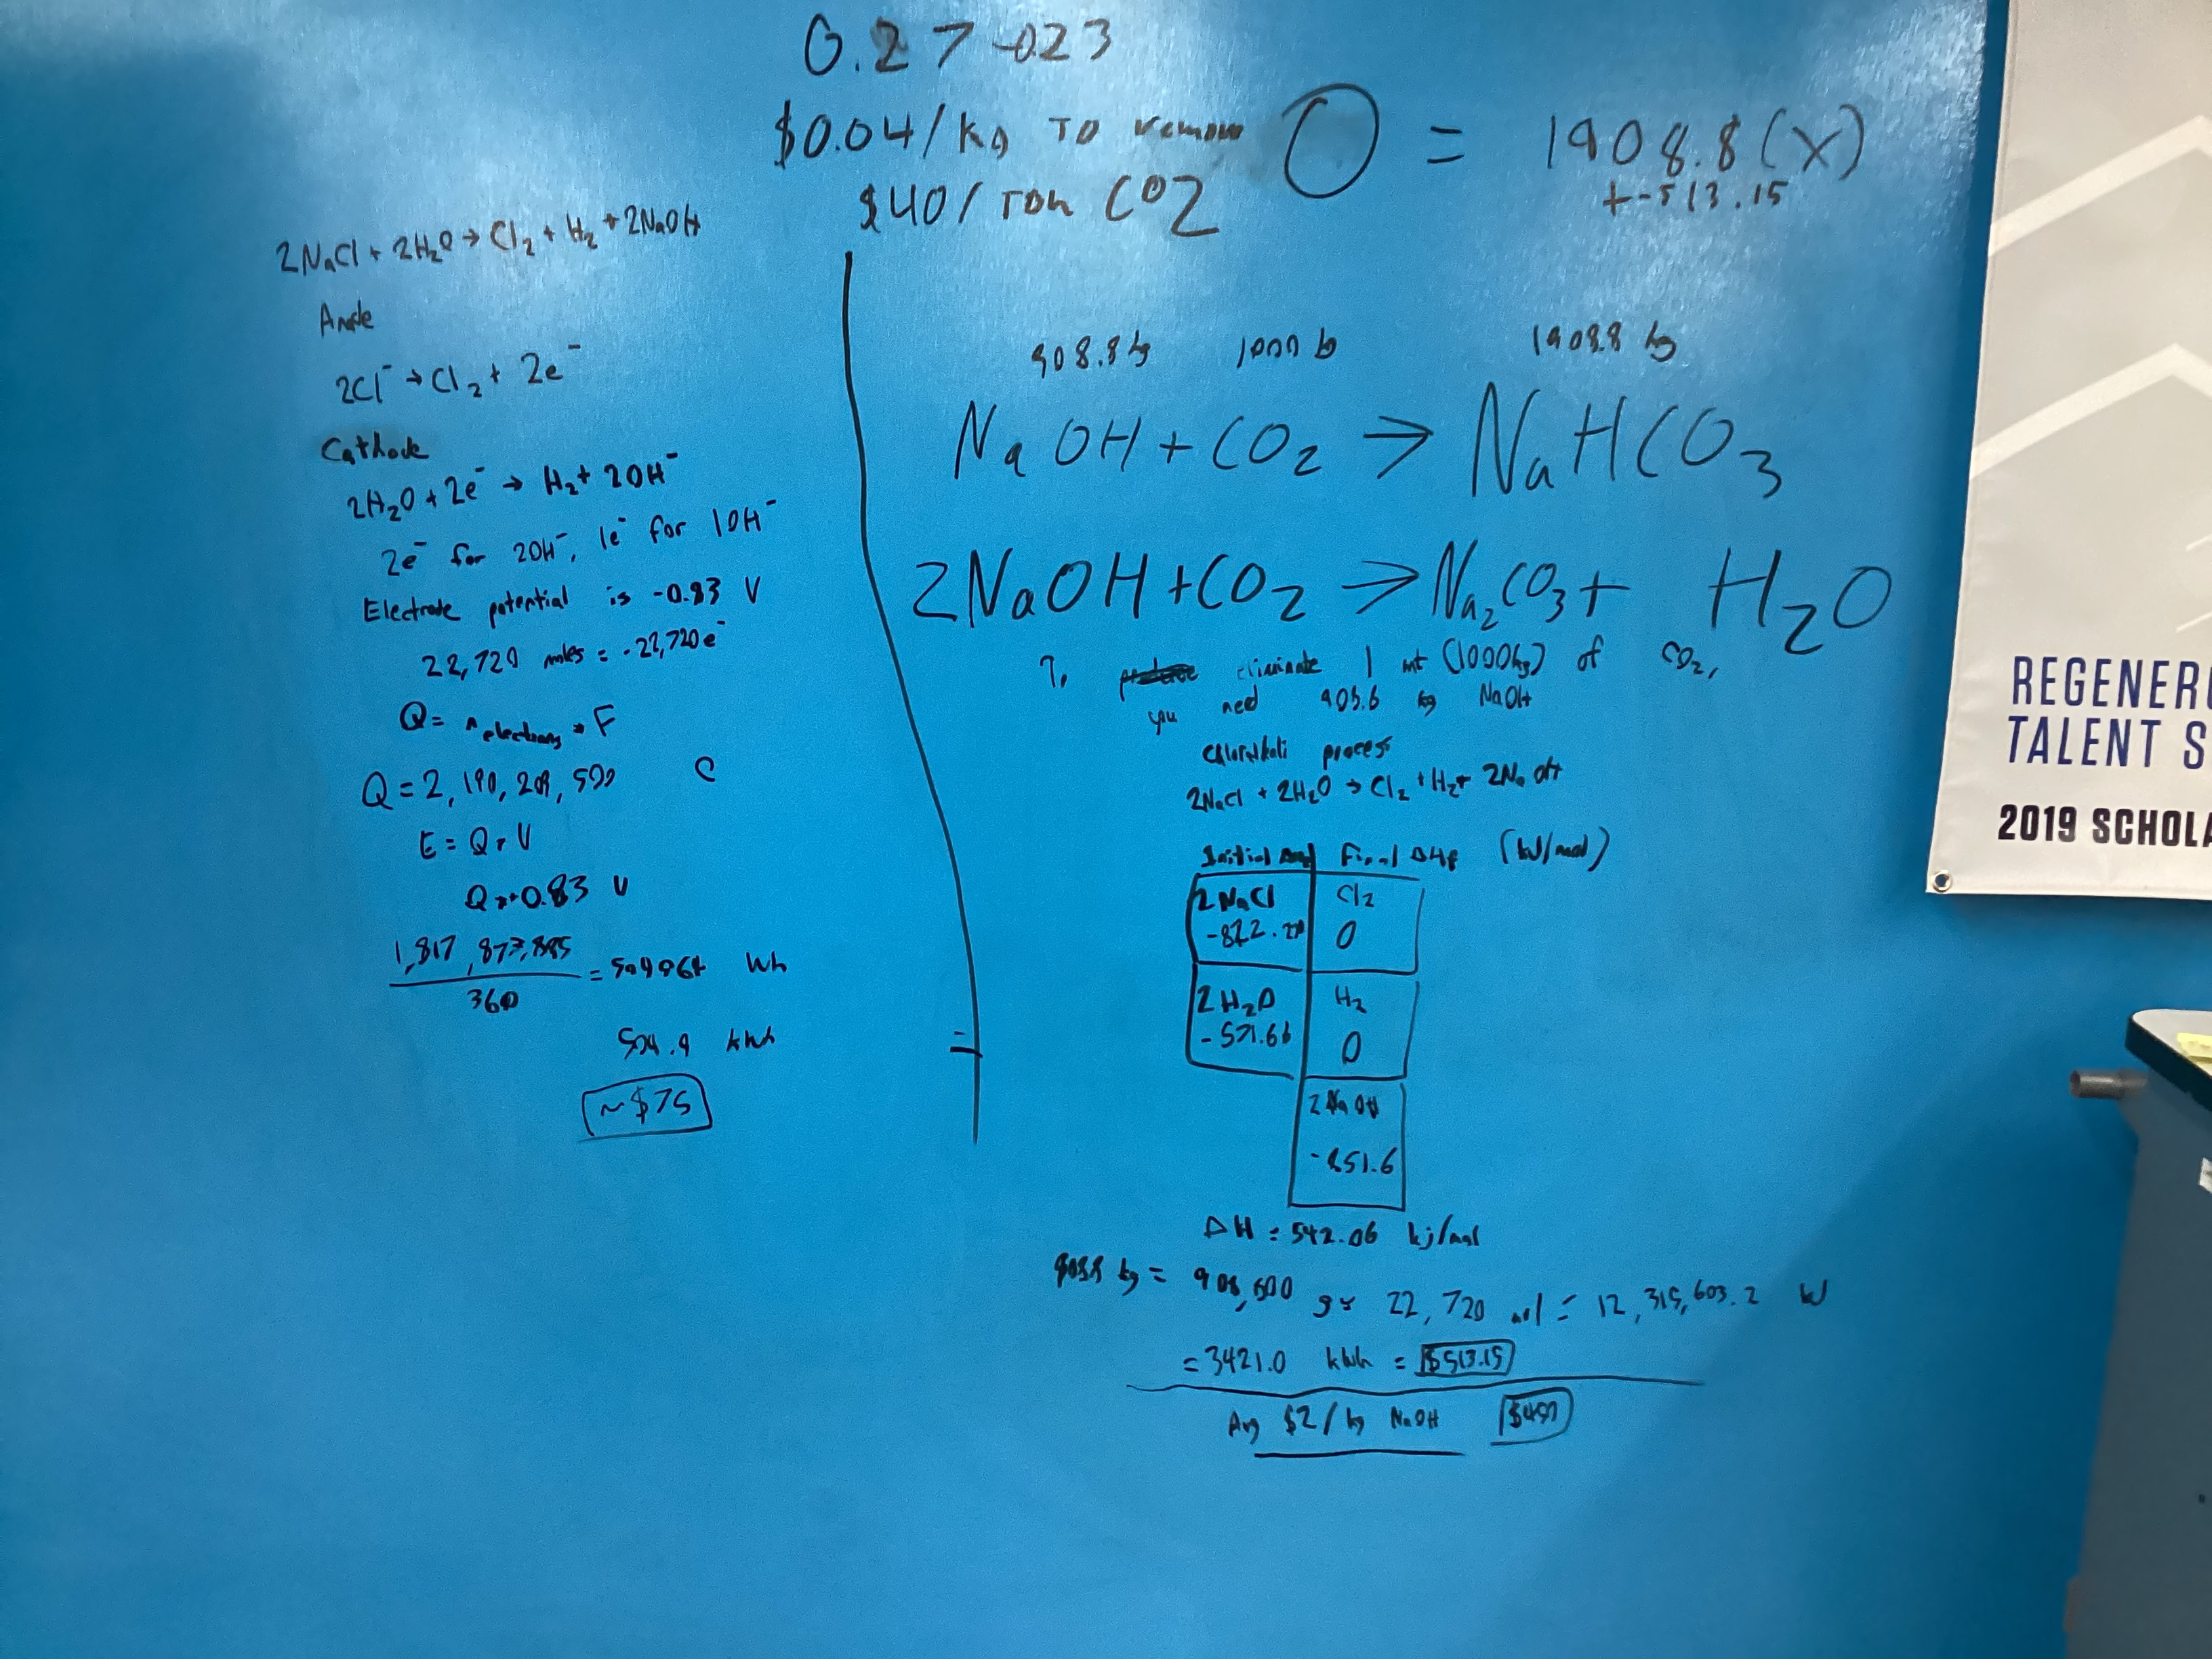 0.27 -0.23
$0.04/kg TO remove
$40/Ton CO2
O = 1908.8(x)
+-513.15
2NaCl + 2H₂O → Cl₂ + H₂ + 2NaOH
Anode
2Cl⁻ → Cl₂ + 2e⁻
Cathode
2H₂O + 2e⁻ → H₂ + 2OH⁻
2e⁻ for 2OH⁻, 1e⁻ for 1OH⁻
Electrode potential is -0.83 V
22,720 moles = -22,720e⁻
Q = n electrons * F
Q = 2,190,209,500 C
E = Q * V
Q * -0.83 V
1,817,873,885
360
= 504964 Wh
504.9 kWh
~$75
=
908.8 kg 1000 kg 1908.8 kg
NaOH + CO₂ → NaHCO₃
2NaOH + CO₂ → Na₂CO₃ + H₂O
To eliminate 1 mt (1000kg) of CO₂,
you need 908.6 kg NaOH
Chloralkali process
2NaCl + 2H₂O → Cl₂ + H₂ + 2NaOH
Initial Final ΔHf (kJ/mol)
2NaCl Cl₂
-822. 0
2H₂O H₂
-571.66 0
2NaOH
-851.6
ΔH = 542.06 kj/mol
908.8 kg = 908,800 g = 22,720 mol = 12,315,603.2 kJ
= 3421.0 kWh = $513.15
Avg $2/kg NaOH $450
REGENER
TALENT S
2019 SCHOLA